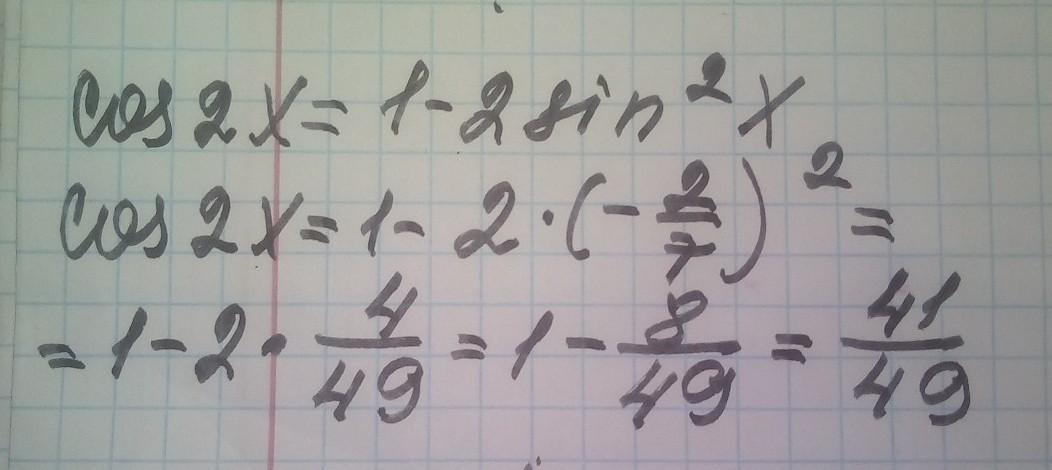 cos 2x = 1 - 2 sin² x
cos 2x = 1 - 2 · (- 2/7)² =
= 1 - 2 · 4/49 = 1 - 8/49 = 41/49